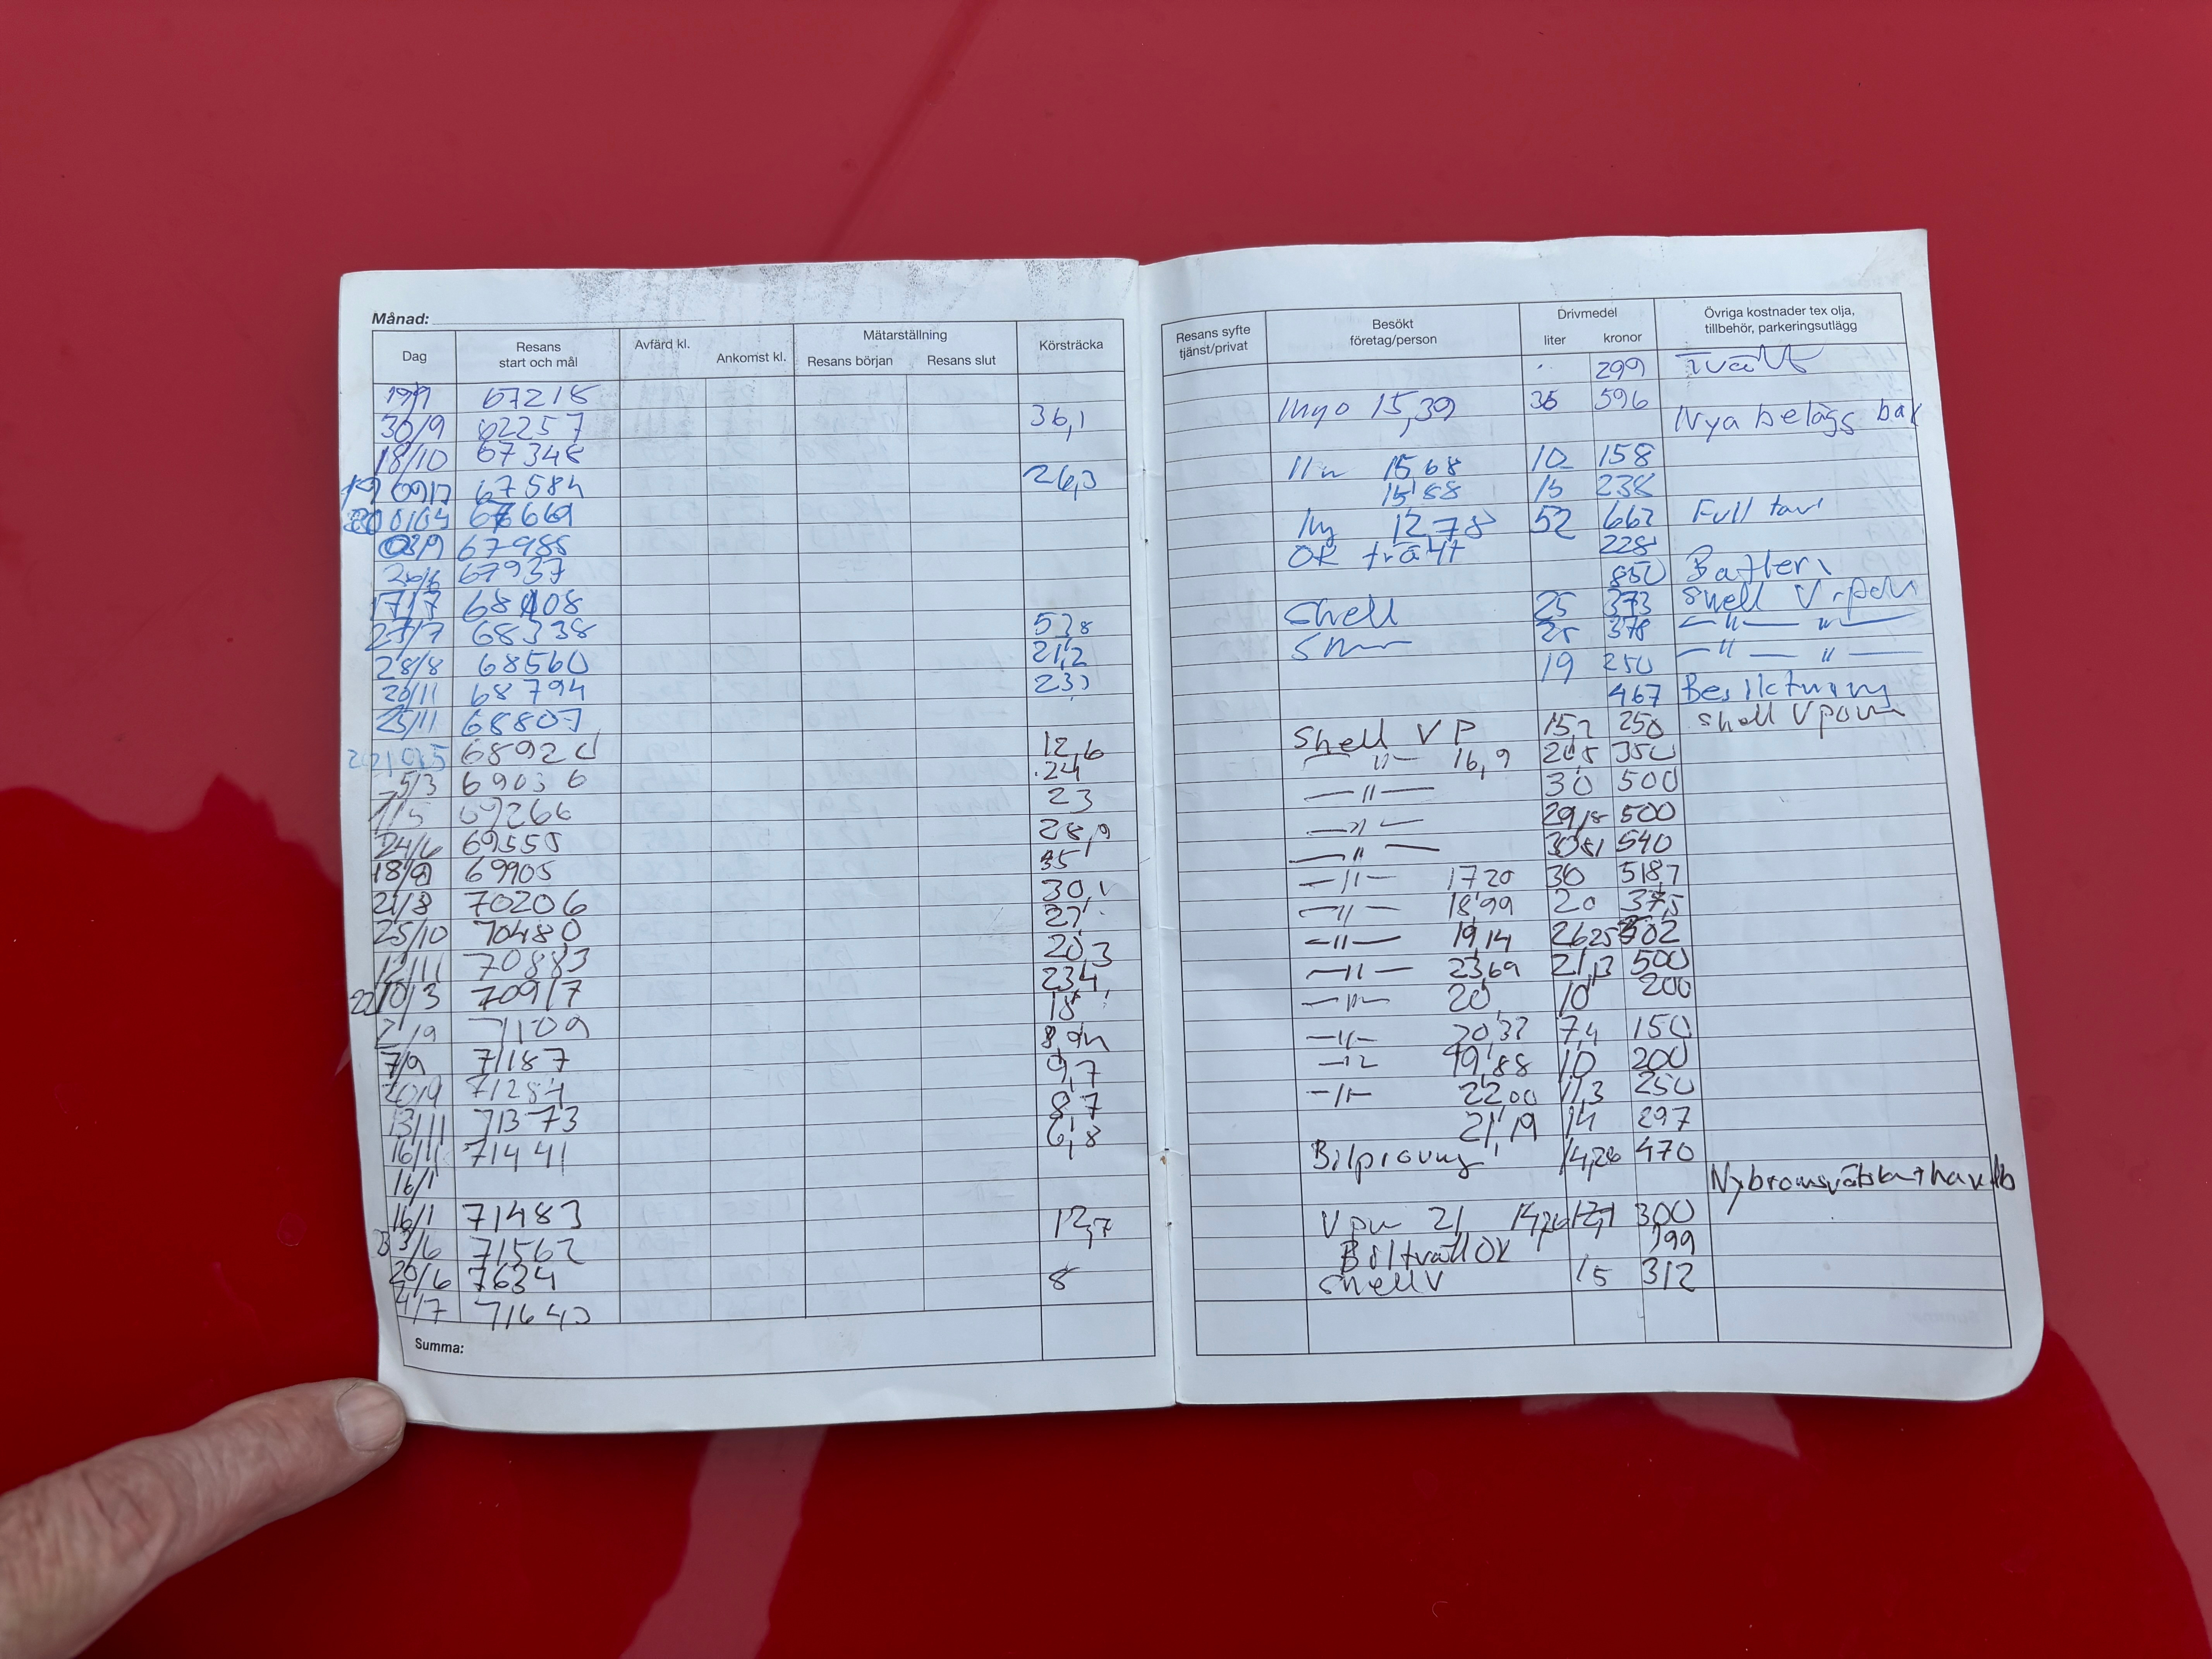 Månad:
Dag Resans start och mål Avfärd kl. Ankomst kl. Mätarställning Resans början Resans slut Körsträcka
19/9 67218
30/9 62257 36,1
18/10 67348
19 0917 67584 26,3
67669
67985
67937
17/7 68108
27/7 68338 538
28/8 68560 21,2
20/11 68794 23
25/11 68807
6892 12,6
5/3 69036 24
1/5 69266 23
24/6 69555 28,9
18/8 69905 35
21/8 70206 30,1
25/10 70480 27
12/11 70883 20,3
22 10/3 70917 234
2/9 71109 18
7/9 71187 8,9
20/9 71284 9,7
13/11 71373 8,7
16/11 71441 6,8
16/1
16/1 71483
23 3/6 71562 12,7
20/6 7634
4/7 71643 8
Summa:
Resans syfte tjänst/privat Besökt företag/person Drivmedel liter kronor Övriga kostnader tex olja, tillbehör, parkeringsutlägg
299 Tvätt
Ingo 15,39 36 596
Nya belägs bak
15 68 10 158
15'88 15 238
Ing 12 78 52 662 Full
OK tvätt 228
850 Batteri
Shell 25 373 Shell V-pow
25 378 — 〃 — 〃 —
19 250 — 〃 — 〃 —
467 Besiktning
Shell VP 15,2 250 Shell Vpow
— 〃 — 16,9 20,5 350
— 〃 — 30 500
— 〃 — 29,8 500
— 〃 — 540
— 〃 — 17 20 30 5187
— 〃 — 18'99 20 375
— 〃 — 19,14 2625 502
— 〃 — 23,69 21,3 500
— 〃 — 20 10 200
— 〃 — 20'32 7,4 150
— 〃 — 19,88 10 200
— 〃 — 22 00 11,3 250
21,19 14 297
Bilprovning 14,26 470
Ny bromsvätska
Vpw 21 14,26 12,7 300
Biltvätt OK 199
Shell V 15 312